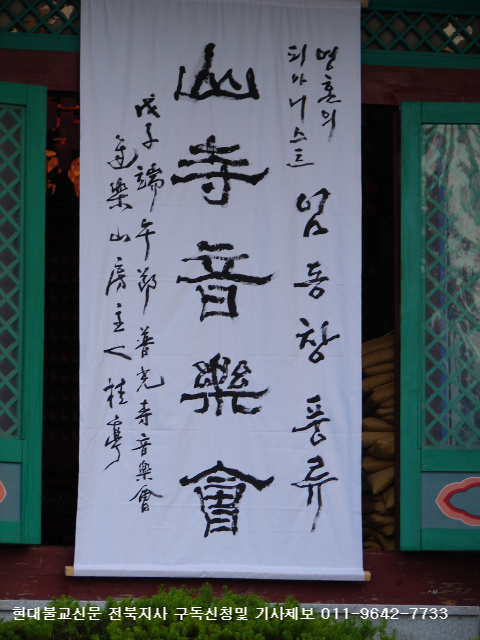 영혼의
피아니스트
임동창풍류
山寺音樂會
戊子端午節普光寺音樂會
樂山房主人桂亭
현대불교신문 전북지사 구독신청및 기사제보 011-9642-7733